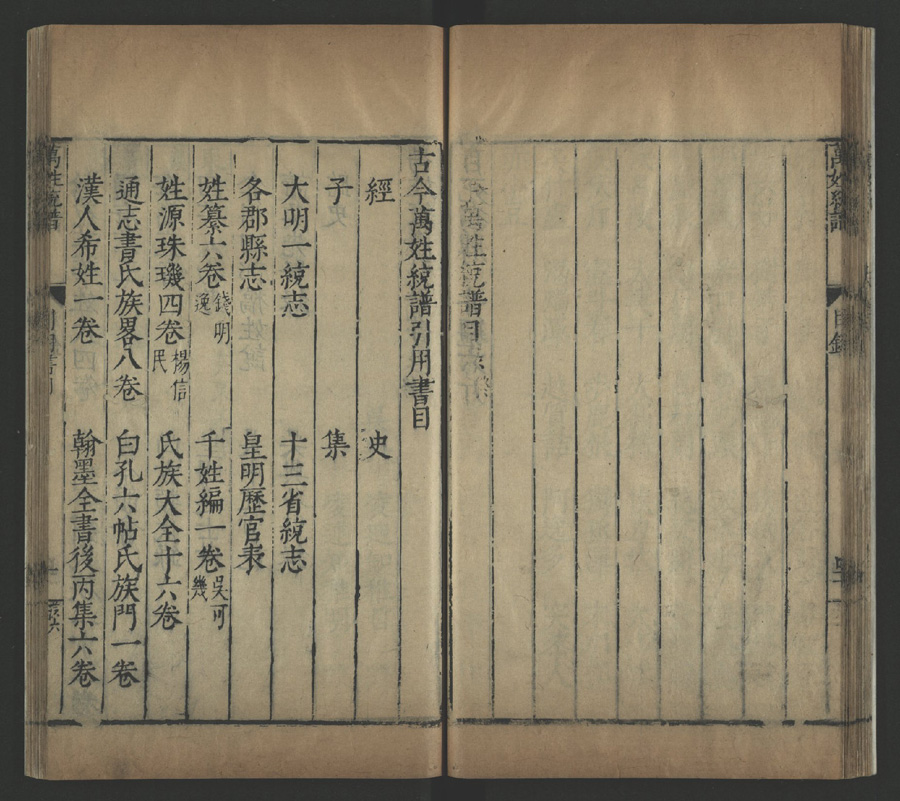 萬姓統譜
目錄
古今萬姓統譜引用書目
經 史
子 集
大明一統志 十三省統志
各郡縣志 皇明歷官表
姓纂六卷 錢明逸 千姓編一卷 吳可幾
姓源珠璣四卷 楊信民 氏族大全十六卷
通志書氏族畧八卷 白孔六帖氏族門一卷
漢人希姓一卷 翰墨全書後丙集六卷
萬姓統譜